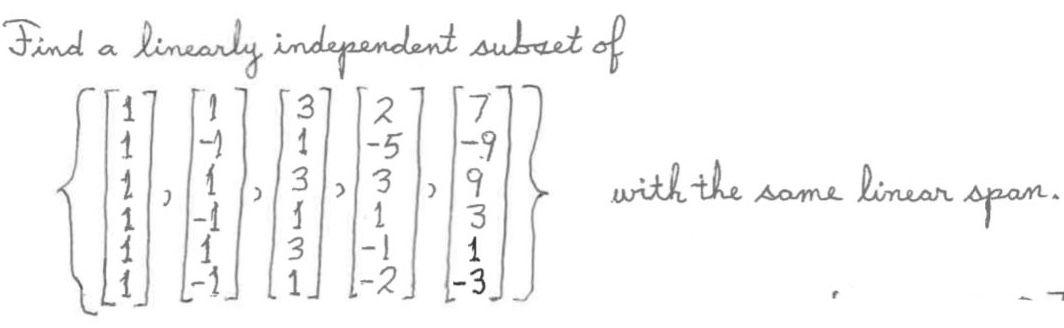 Find a linearly independent subset of
{ [1 1 1 1 1 1], [1 -1 1 -1 1 -1], [3 1 3 1 3 1], [2 -5 3 1 -1 -2], [7 -9 9 3 1 -3] } with the same linear span.